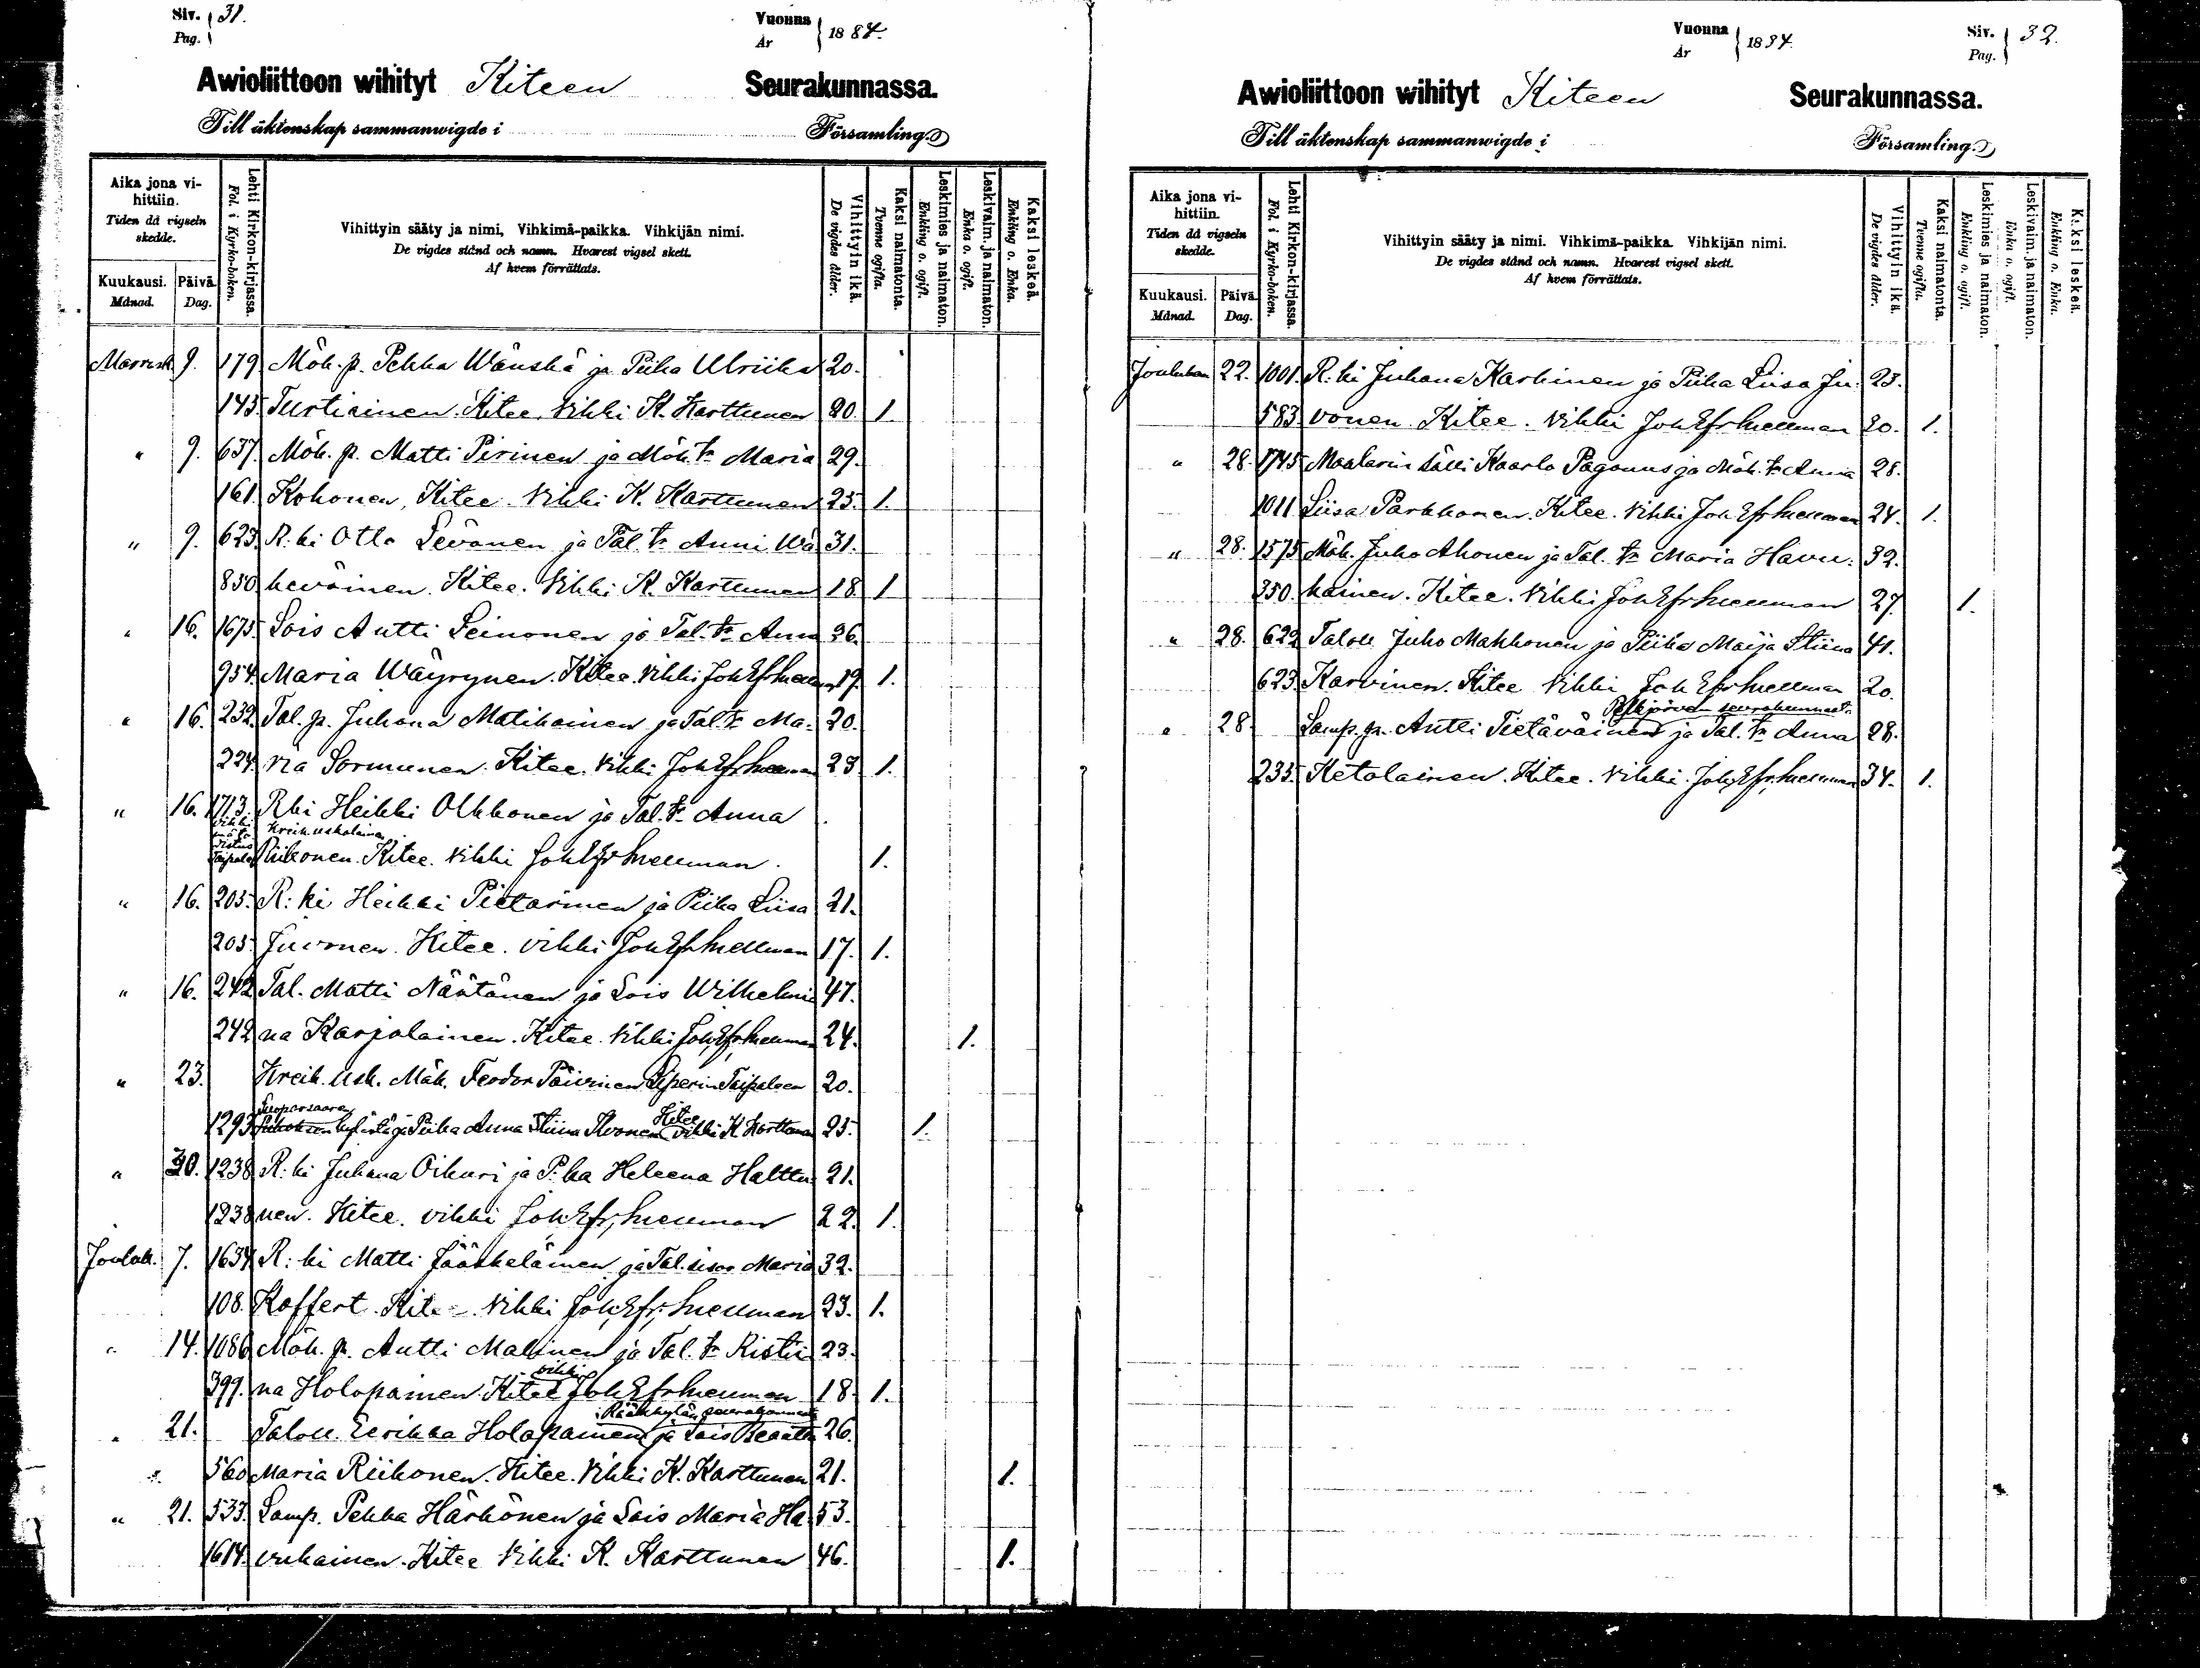 Siv. 31.
Pag.
Vuonna 1884.
År
Awioliittoon wihityt Kiteen Seurakunnassa.
Till äktenskap sammanwigde i Församling.
Aika jona vi-
hittiin.
Tiden då vigseln
skedde.
Kuukausi.
Månad.
Päivä.
Dag.
Lehti Kirkon-kirjassa.
Fol. i Kyrko-boken.
Vihittyin sääty ja nimi, Vihkimä-paikka. Vihkijän nimi.
De vigdes stånd och namn. Hvarest vigsel skett.
Af hvem förrättats.
Vihittyin ikä.
De vigdes ålder.
Kaksi naimatonta.
Tvenne ogifta.
Leskimies ja naimaton.
Enkling o. ogift.
Leskivaim. ja naimaton.
Enka o. ogift.
Kaksi leskeä.
Enkling o. Enka.
Marrask. 9. 179 Möh. p. Pekka Wänskä ja Piika Ulriika 20.
143. Turtiainen. Kitee. Vihki K. Karttunen 20. 1.
" 9. 637. Möh. p. Matti Pirinen ja Möh. tr Maria 29.
161. Kohonen, Kitee. Vihki K. Karttunen 25. 1.
" 9. 623. R. ki Otto Levänen ja Tal. tr Anni Wä 31.
850. keväinen. Kitee. Vihki K. Karttunen 18 1
" 16. 1675. Lois Antti Leinonen ja Tal. tr Anna 36.
954. Maria Wäyrynen. Kitee. Vihki Joh Efr Snellman 19. 1.
" 16. 232. Tal. p. Juhana Matikainen ja Tal. tr Ma- 20.
224. ria Sormunen. Kitee. Vihki Joh Efr Snellman 23 1.
" 16. 1713. Rki Heikki Olkkonen ja Tal. tr Anna
Kreik. uskolainen
Riikonen. Kitee. Vihki Joh Efr Snellman. 1.
" 16. 205. R: ki Heikki Pietarinen ja Piika Liisa 21.
205. Juvonen. Kitee. Vihki Joh Efr Snellman 17. 1.
" 16. 242 Tal. Matti Näätänen ja Lois Wilhelmi 47.
242 na Karjalainen. Kitee. Vihki Joh, Efr, Snellman 24. 1.
" 23. Kreik. Usk. Mäk. Feodor Päivinen Liperin Taipaleen 20.
1293 kylästä ja Piika Anna Stiina Ikonen Kitee vihki K Karttunen 25. 1.
" 30. 1238 R: ki Juhana Oikuri ja P. ka Heleena Halttu 21.
1238 nen. Kitee. vihki Joh. Efr, Snellman 22. 1.
Jouluk. 7. 1637 R: ki Matti Jääskeläinen ja Tal. sisar Maria 32.
108. Koffert. Kitee. Vihki Joh, Efr, Snellman 23. 1.
" 14. 1086 Möh. p. Antti Malinen ja Tal. tr Ristii 23.
399. na Holopainen. Kitee vihki Joh Efr Snellman 18. 1.
" 21. Talou. Eerikka Holopainen Rääkkylän seurakunnasta ja Lois Beaatta 26.
560 Maria Riikonen. Kitee. Vihki K. Karttunen 21. 1.
" 21. 533. Lamp. Pekka Härkönen ja Lois Maria Ha 53.
1614. vukainen. Kitee Vihki K. Karttunen 46. 1.
Vuonna 1884.
År
Siv. 32.
Pag.
Awioliittoon wihityt Kiteen Seurakunnassa.
Till äktenskap sammanwigde i Församling.
Aika jona vi-
hittiin.
Tiden då vigseln
skedde.
Kuukausi.
Månad.
Päivä.
Dag.
Lehti Kirkon-kirjassa.
Fol. i Kyrko-boken.
Vihittyin sääty ja nimi. Vihkimä-paikka. Vihkijän nimi.
De vigdes stånd och namn. Hvarest vigsel skett.
Af hvem förrättats.
Vihittyin ikä.
De vigdes ålder.
Kaksi naimatonta.
Tvenne ogifta.
Leskimies ja naimaton.
Enkling o. ogift.
Leskivaim. ja naimaton.
Enka o. ogift.
Kaksi leskeä.
Enkling o. Enka.
Joulukuu 22. 1001. R: ki Juhana Karhinen ja Piika Liisa Ju- 23.
583 vonen. Kitee. Vihki Joh Efr Snellman 20. 1.
" 28. 1745 Maalarin sälli Kaarlo Paganus ja Mäk. tr Anna 28.
1011 Liisa Parkkonen. Kitee. Vihki Joh Efr Snellman 24. 1.
" 28. 1575 Mäk. Juho Ahonen ja Tal. tr Maria Havu- 32.
350. kainen. Kitee. Vihki Joh Efr Snellman 27. 1.
" 28. 622 Talou. Juho Makkonen ja Piika Maija Stiina 41.
623. Karvinen. Kitee Vihki Joh Efr Snellman 20.
" 28. Lamp. p. Antti Tietäväinen Pälkjärven seurakunnasta ja Tal. tr Anna 28.
235. Ketolainen. Kitee. Vihki. Joh, Efr, Snellman 34. 1.